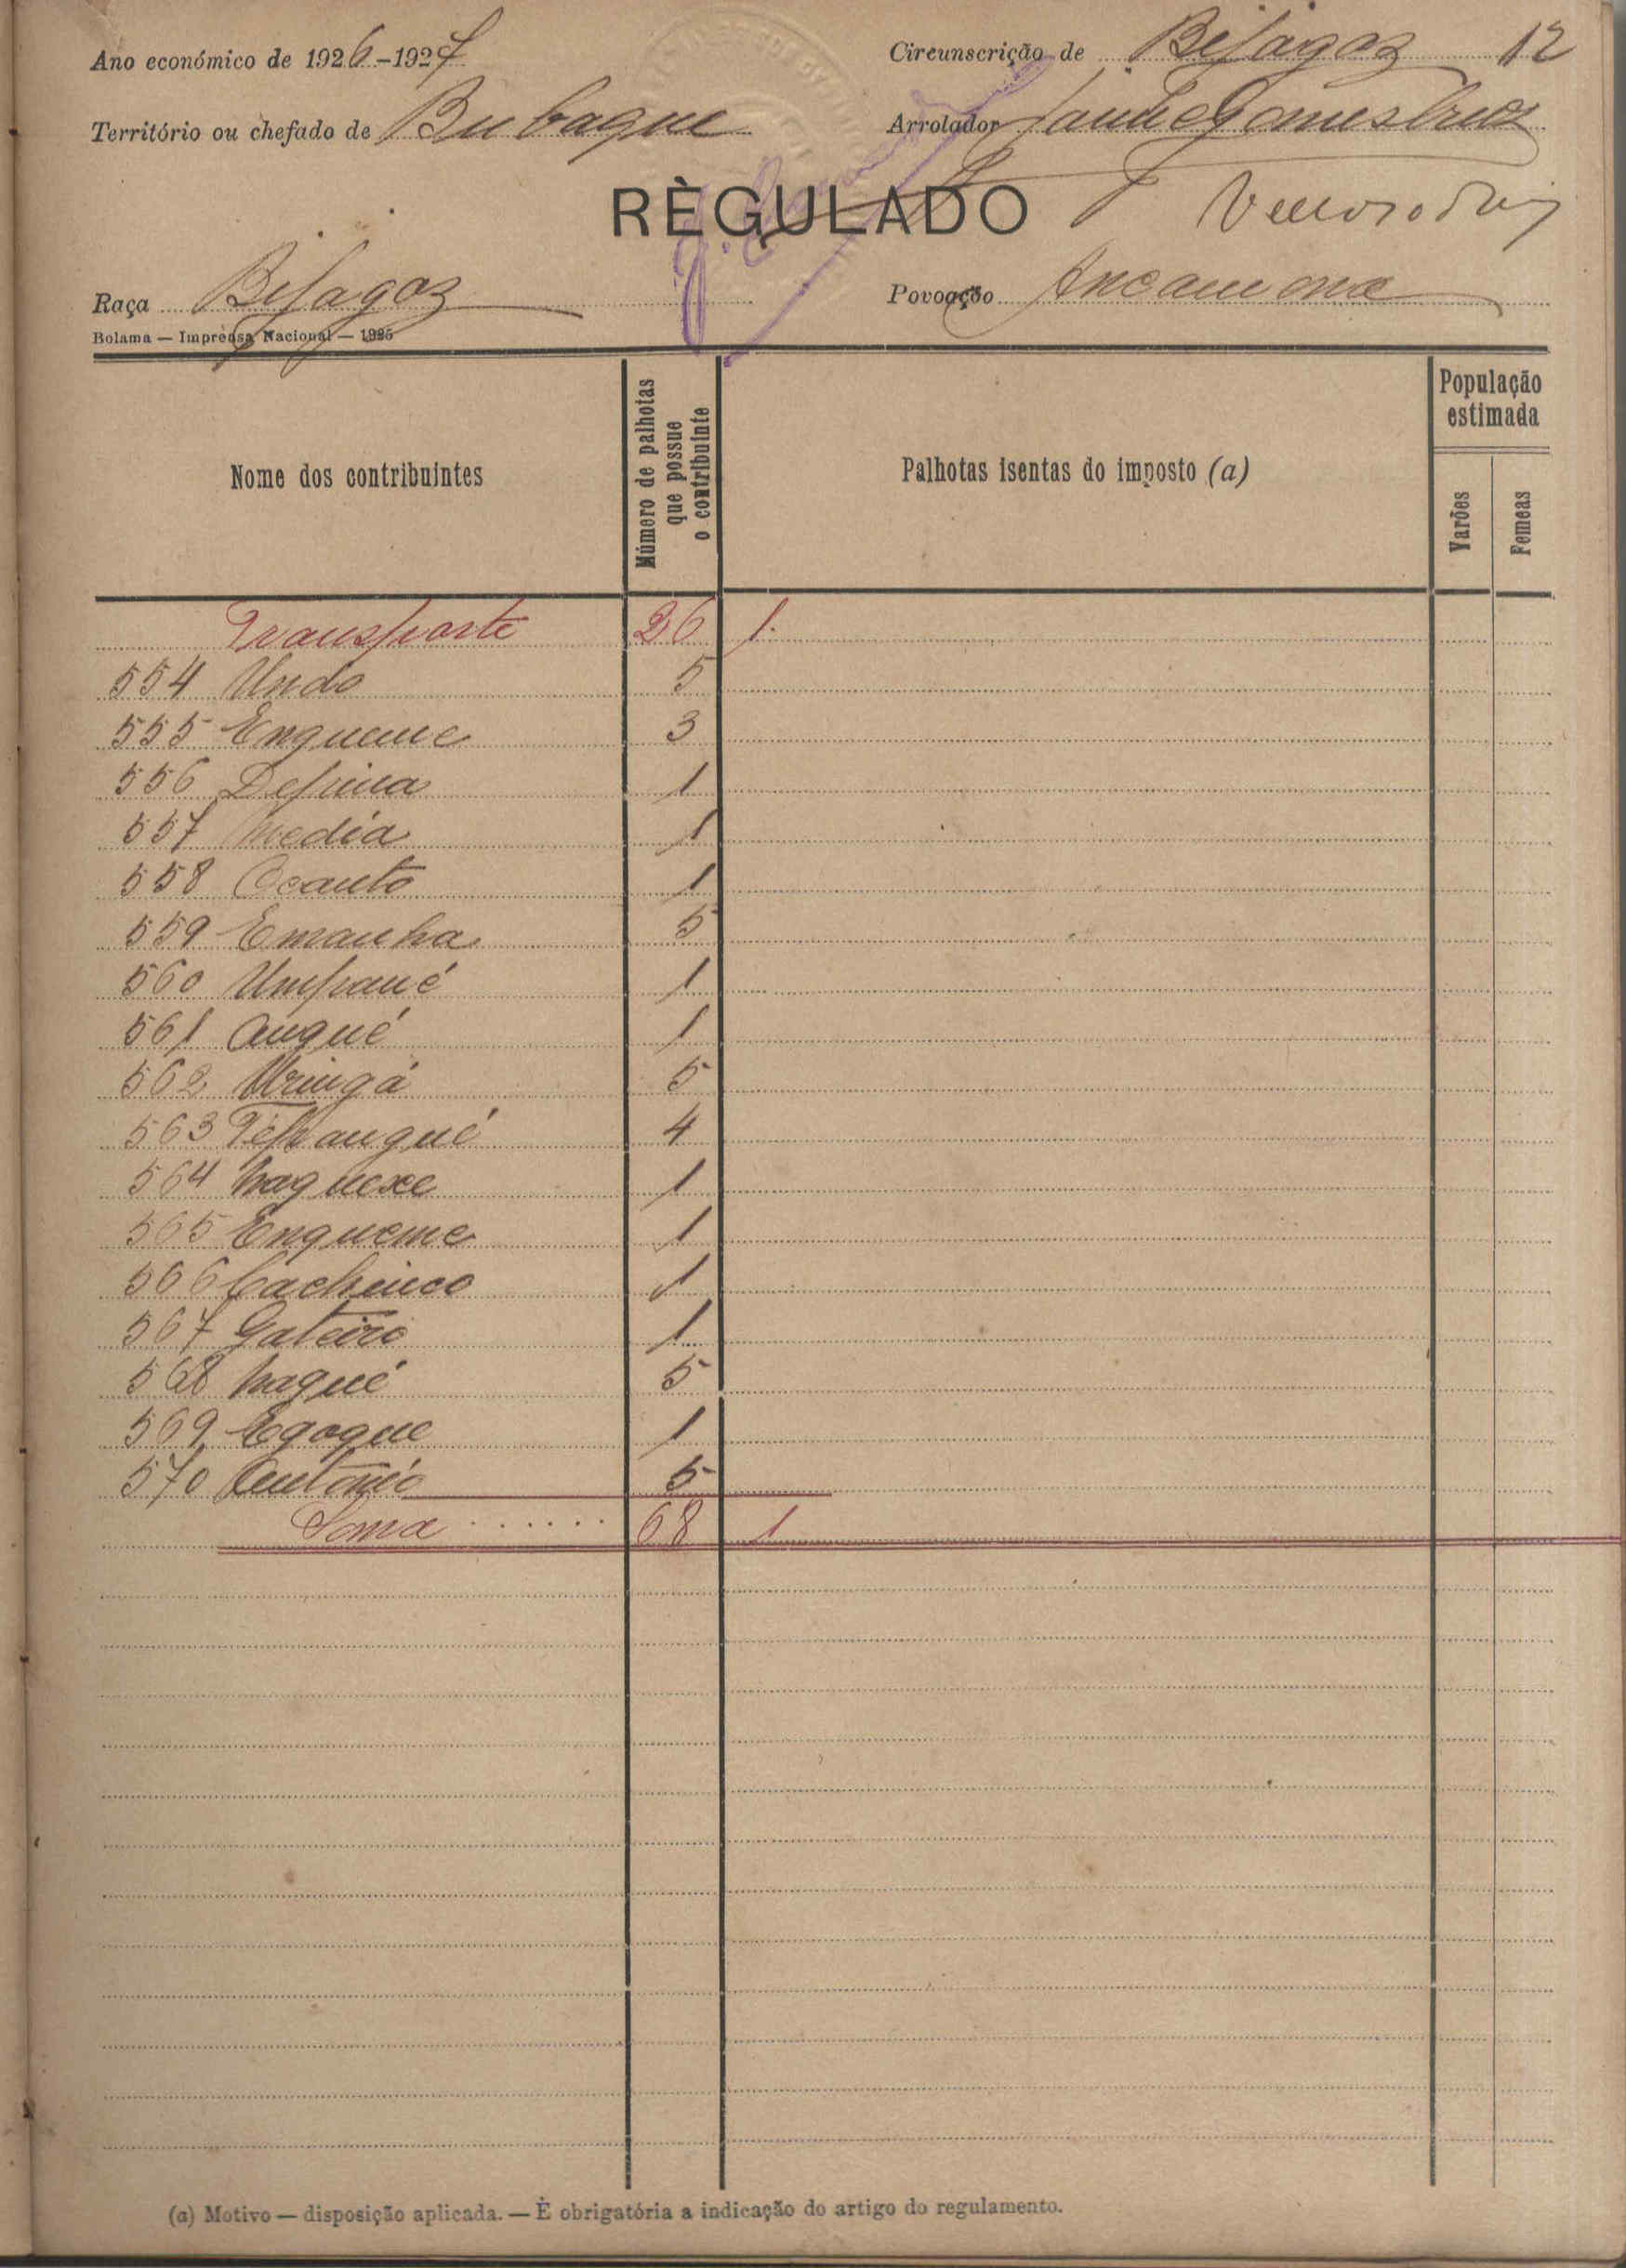 Ano económico de 1926-1927 Circunscrição de Bijagoz 12
Território ou chefado de Bubaque Arrolador Jaime Gomes
RÈGULADO
Raça Bijagoz Povoação Ancamona
Bolama — Imprênsa Nacional — 1925
Nome dos contribuintes Número de palhotas que possue o contribuinte Palhotas isentas do imposto (a) População estimada
Varões Femeas
Transporte 26 1
554 Undo 5
555 Enqueme 3
556 Depina 1
557 Media 1
558 Ocanto 1
559 Emanha 5
560 Umpané 1
561 Anqué 1
562 Uringá 5
563 Tepangué 4
564 Naguexe 1
565 Enqueme 1
566 Cachinco 1
567 Gateiro 1
568 Naqué 5
569 Egoque 1
570 António 5
Soma ...... 68 1
(a) Motivo — disposição aplicada. — È obrigatória a indicação do artigo do regulamento.